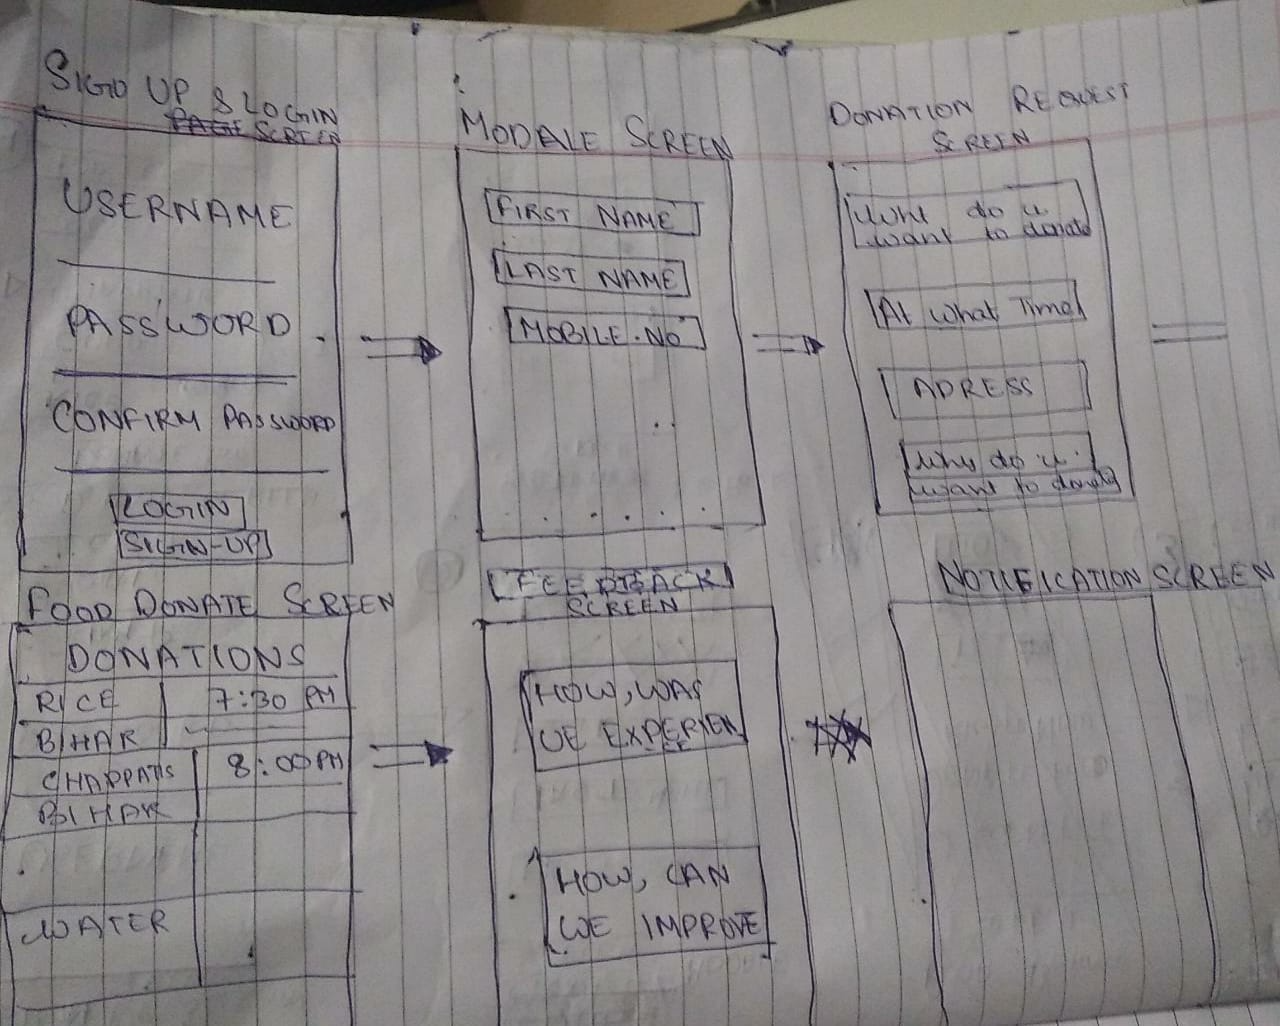 SIGN UP & LOGIN
SCREEN
USERNAME
PASSWORD
CONFIRM PASSWORD
LOGIN
SIGN-UP
MODALE SCREEN
FIRST NAME
LAST NAME
MOBILE.NO
DONATION REQUEST
SCREEN
do u
want to donate
At what Time
ADRESS
why do u
want to donate
FOOD DONATE SCREEN
DONATIONS
RICE 7:30 PM
BIHAR
CHAPPATIS 8:00 PM
BIHAR
WATER
FEEDBACK
SCREEN
HOW, WAS
UE EXPERIEN
CE
HOW, CAN
WE IMPROVE
NOTIFICATION SCREEN